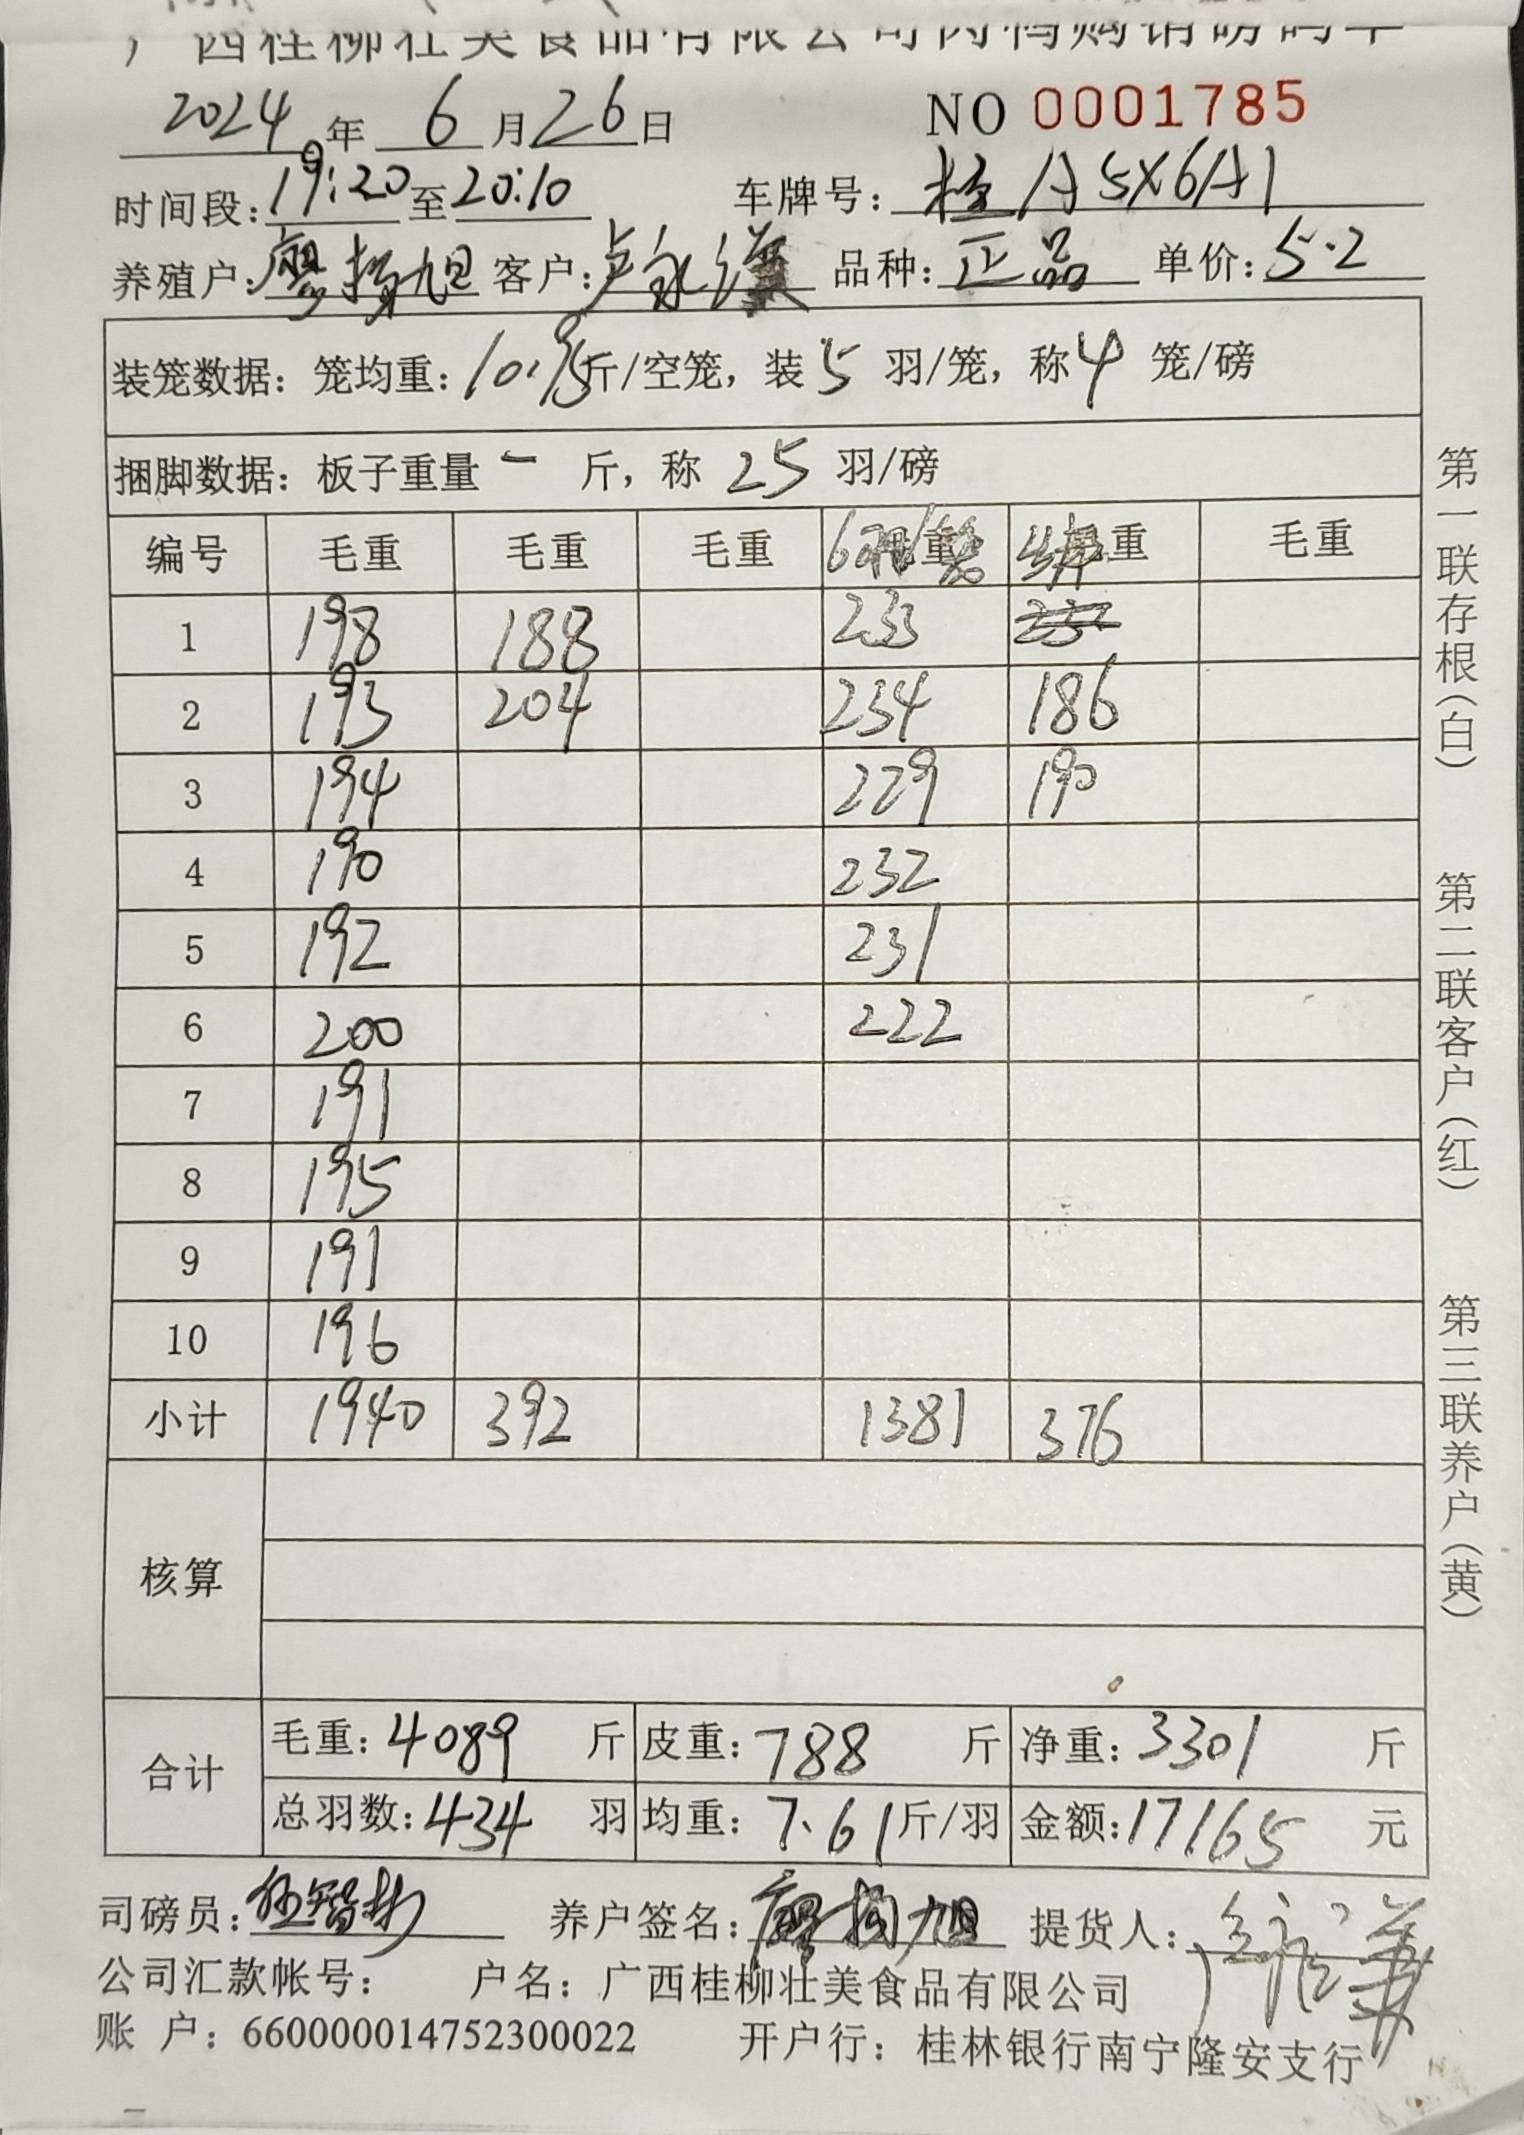 广西桂柳壮美食品有限公司肉鸭购销磅码单
2024年 6月26日 NO 0001785
时间段:19:20至20:10 车牌号: 桂A5X6A1
养殖户:廖 旭 客户:卢永汉 品种:正品 单价:5.2
装笼数据: 笼均重:10.95斤/空笼, 装5羽/笼, 称4笼/磅
捆脚数据: 板子重量 一 斤, 称 25 羽/磅
编号 毛重 毛重 毛重 6羽/笼 重 毛重
1 198 188 233
2 193 204 234 186
3 194 229 190
4 190 232
5 192 231
6 200 222
7 191
8 195
9 191
10 196
小计 1940 392 1381 376
核算
合计
毛重: 4089 斤 皮重: 788 斤 净重: 3301 斤
总羽数: 434 羽 均重: 7.61斤/羽 金额: 17165 元
司磅员: 智彬 养户签名: 廖 旭 提货人:
公司汇款帐号: 户名: 广西桂柳壮美食品有限公司
账 户: 660000014752300022 开户行: 桂林银行南宁隆安支行
第一联存根(白) 第二联客户(红) 第三联养户(黄)